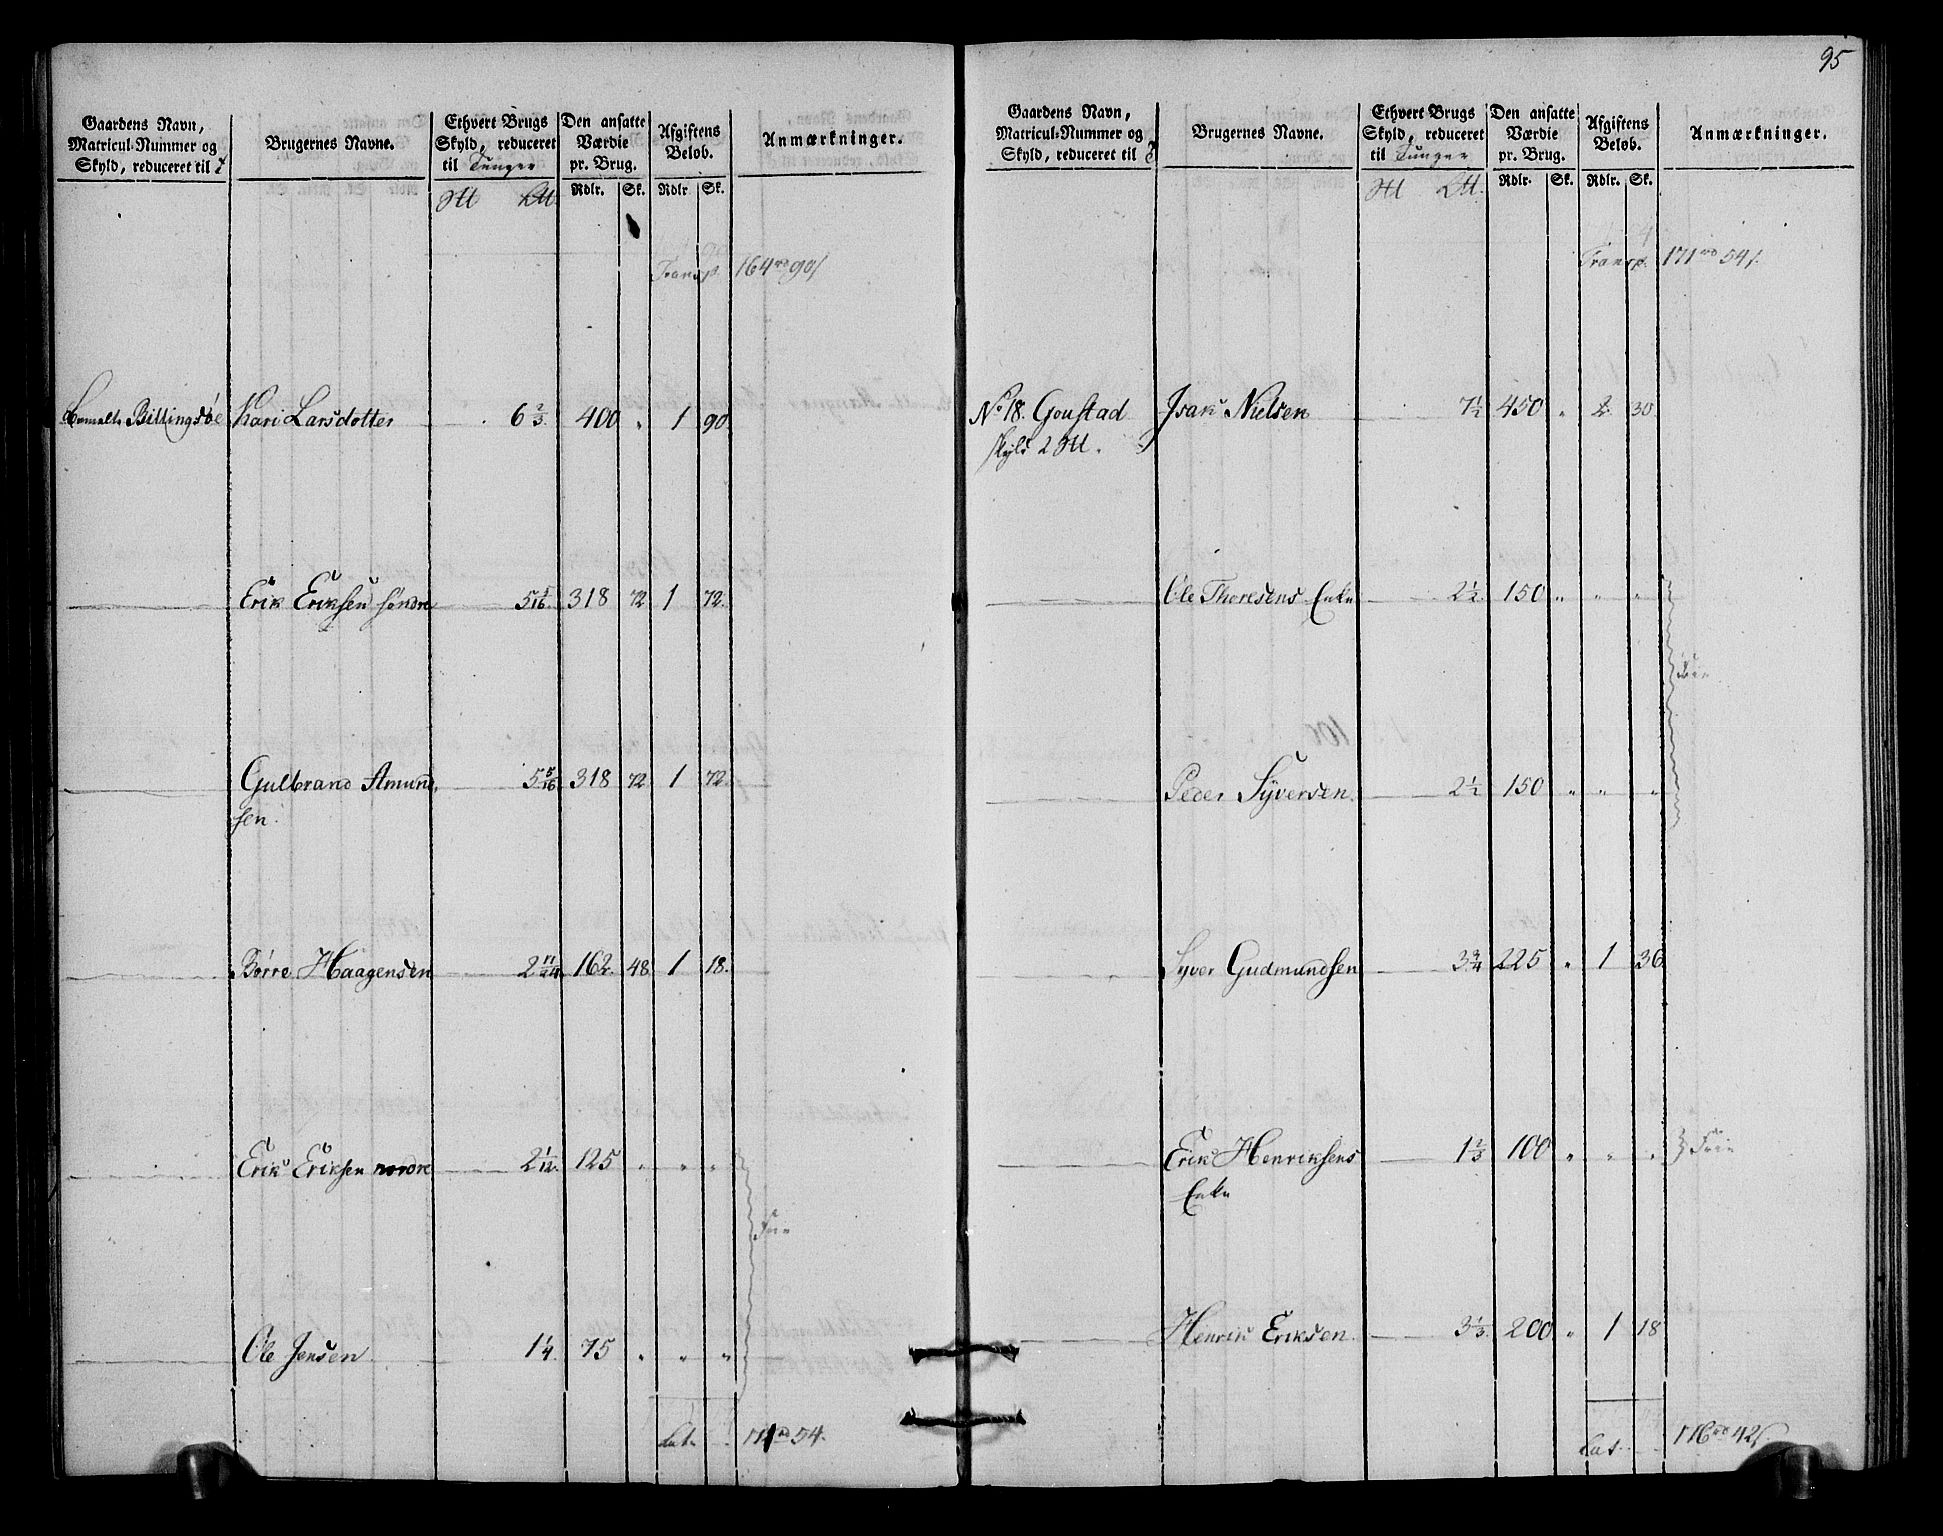 Gaardens Navn, Matricul-Nummer og Skyld, reduceret til
Brugernes Navne.
Ethvert Brugs Skyld, reduceret til Tunger
Den ansatte Værdie pr. Brug.
Afgiftens Beløb.
Anmærkninger.
Rdlr. Sk. Rdlr. Sk.
Transp. 164 rd 90
Billingsøe Kari Larsdotter 6 2/3. 400 " 1 90
Erik Eriksen søndre 5 5/16. 318 72 1 72.
Gulbrand Amund- 5 5/16. 318 72 1 72.
sen.
Børre Haagensen 2 17/24. 162 48 1 18.
Erik Eriksen nordre 2 1/12. 125 " " "
Frie
Ole Jensen 1 1/4. 75 " " "
Lat. 171 rd 54.
95
Gaardens Navn, Matricul-Nummer og Skyld, reduceret til
Brugernes Navne.
Ethvert Brugs Skyld, reduceret til Tunger
Den ansatte Værdie pr. Brug.
Afgiftens Beløb.
Anmærkninger.
Rdlr. Sk. Rdlr. Sk.
Transp. 171 rd 54
No 18. Goustad Isak Nielsen 7 1/2 450 " 2 30
skyld 2
Ole Thoresens Enke 2 1/2 150 " " "
Frie
Peder Syversen 2 1/2 150 " " "
Syver Gudmundsen 3 3/4 225 " 1 36
Erik Henriksens 1 2/3 100 " " " Frie
Enke
Henrik Eriksen 3 1/3. 200 " 1 18
Lat. 176 rd 42